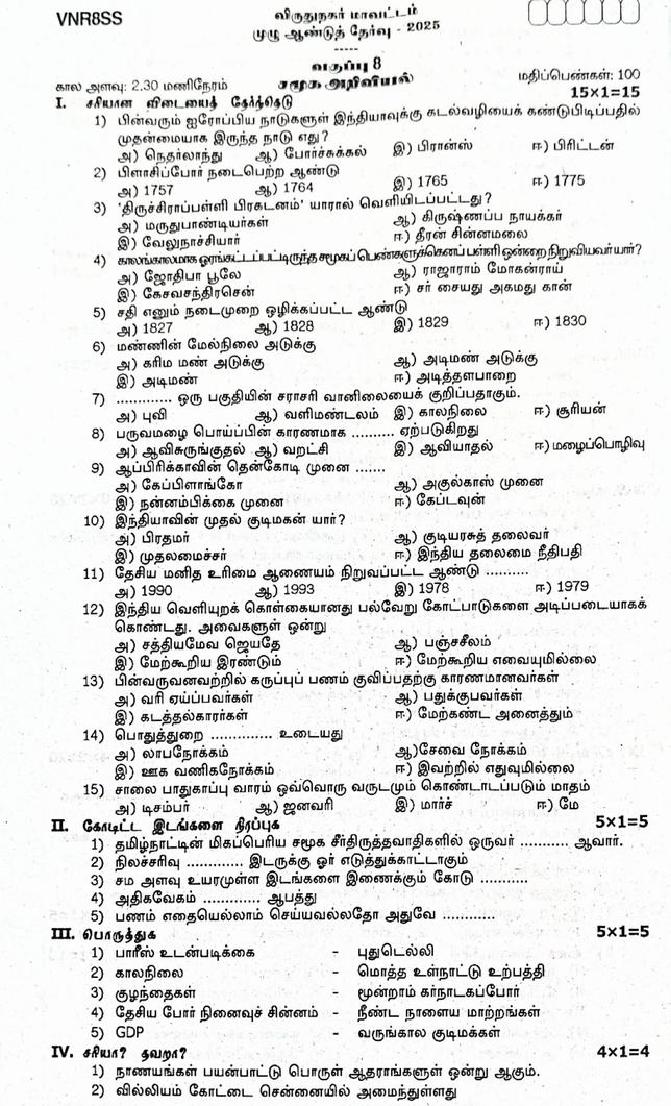 VNR8SS
விருதுநகர் மாவட்டம்
முழு ஆண்டுத் தேர்வு - 2025
-----
வகுப்பு 8
கால அளவு: 2.30 மணிநேரம் சமூக அறிவியல் மதிப்பெண்கள்: 100
I. சரியான விடையைத் தேர்ந்தெடு 15x1=15
1) பின்வரும் ஐரோப்பிய நாடுகளுள் இந்தியாவுக்கு கடல்வழியைக் கண்டுபிடிப்பதில்
முதன்மையாக இருந்த நாடு எது?
அ) நெதர்லாந்து ஆ) போர்ச்சுக்கல் இ) பிரான்ஸ் ஈ) பிரிட்டன்
2) பிளாசிப்போர் நடைபெற்ற ஆண்டு
அ) 1757 ஆ) 1764 இ) 1765 ஈ) 1775
3) 'திருச்சிராப்பள்ளி பிரகடனம்' யாரால் வெளியிடப்பட்டது?
அ) மருதுபாண்டியர்கள் ஆ) கிருஷ்ணப்ப நாயக்கர்
இ) வேலுநாச்சியார் ஈ) தீரன் சின்னமலை
4) காலங்காலமாக ஓரங்கட்டப்பட்டிருந்த சமூகப் பெண்களுக்கெனப் பள்ளி ஒன்றை நிறுவியவர் யார்?
அ) ஜோதிபா பூலே ஆ) ராஜாராம் மோகன்ராய்
இ) கேசவசந்திரசென் ஈ) சர் சையது அகமது கான்
5) சதி எனும் நடைமுறை ஒழிக்கப்பட்ட ஆண்டு
அ) 1827 ஆ) 1828 இ) 1829 ஈ) 1830
6) மண்ணின் மேல்நிலை அடுக்கு
அ) கரிம மண் அடுக்கு ஆ) அடிமண் அடுக்கு
இ) அடிமண் ஈ) அடித்தளபாறை
7) ............ ஒரு பகுதியின் சராசரி வானிலையைக் குறிப்பதாகும்.
அ) புவி ஆ) வளிமண்டலம் இ) காலநிலை ஈ) சூரியன்
8) பருவமழை பொய்ப்பின் காரணமாக .......... ஏற்படுகிறது
அ) ஆவிசுருங்குதல் ஆ) வறட்சி இ) ஆவியாதல் ஈ) மழைப்பொழிவு
9) ஆப்பிரிக்காவின் தென்கோடி முனை .......
அ) கேப்பிளாங்கோ ஆ) அகுல்காஸ் முனை
இ) நன்னம்பிக்கை முனை ஈ) கேப்டவுன்
10) இந்தியாவின் முதல் குடிமகன் யார்?
அ) பிரதமர் ஆ) குடியரசுத் தலைவர்
இ) முதலமைச்சர் ஈ) இந்திய தலைமை நீதிபதி
11) தேசிய மனித உரிமை ஆணையம் நிறுவப்பட்ட ஆண்டு ..........
அ) 1990 ஆ) 1993 இ) 1978 ஈ) 1979
12) இந்திய வெளியுறக் கொள்கையானது பல்வேறு கோட்பாடுகளை அடிப்படையாகக்
கொண்டது. அவைகளுள் ஒன்று
அ) சத்தியமேவ ஜெயதே ஆ) பஞ்சசீலம்
இ) மேற்கூறிய இரண்டும் ஈ) மேற்கூறிய எவையுமில்லை
13) பின்வருவனவற்றில் கருப்புப் பணம் குவிப்பதற்கு காரணமானவர்கள்
அ) வரி ஏய்ப்பவர்கள் ஆ) பதுக்குபவர்கள்
இ) கடத்தல்காரர்கள் ஈ) மேற்கண்ட அனைத்தும்
14) பொதுத்துறை .............. உடையது
அ) லாபநோக்கம் ஆ)சேவை நோக்கம்
இ) ஊக வணிகநோக்கம் ஈ) இவற்றில் எதுவுமில்லை
15) சாலை பாதுகாப்பு வாரம் ஒவ்வொரு வருடமும் கொண்டாடப்படும் மாதம்
அ) டிசம்பர் ஆ) ஜனவரி இ) மார்ச் ஈ) மே
II. கோடிட்ட இடங்களை நிரப்புக 5x1=5
1) தமிழ்நாட்டின் மிகப்பெரிய சமூக சீர்திருத்தவாதிகளில் ஒருவர் ........... ஆவார்.
2) நிலச்சரிவு ............. இடருக்கு ஓர் எடுத்துக்காட்டாகும்
3) சம அளவு உயரமுள்ள இடங்களை இணைக்கும் கோடு ...........
4) அதிகவேகம் ............. ஆபத்து
5) பணம் எதையெல்லாம் செய்யவல்லதோ அதுவே ............
III. பொருத்துக 5x1=5
1) பாரீஸ் உடன்படிக்கை - புதுடெல்லி
2) காலநிலை - மொத்த உள்நாட்டு உற்பத்தி
3) குழந்தைகள் - மூன்றாம் கர்நாடகப்போர்
4) தேசிய போர் நினைவுச் சின்னம் - நீண்ட நாளைய மாற்றங்கள்
5) GDP - வருங்கால குடிமக்கள்
IV. சரியா? தவறா? 4x1=4
1) நாணயங்கள் பயன்பாட்டு பொருள் ஆதராங்களுள் ஒன்று ஆகும்.
2) வில்லியம் கோட்டை சென்னையில் அமைந்துள்ளது